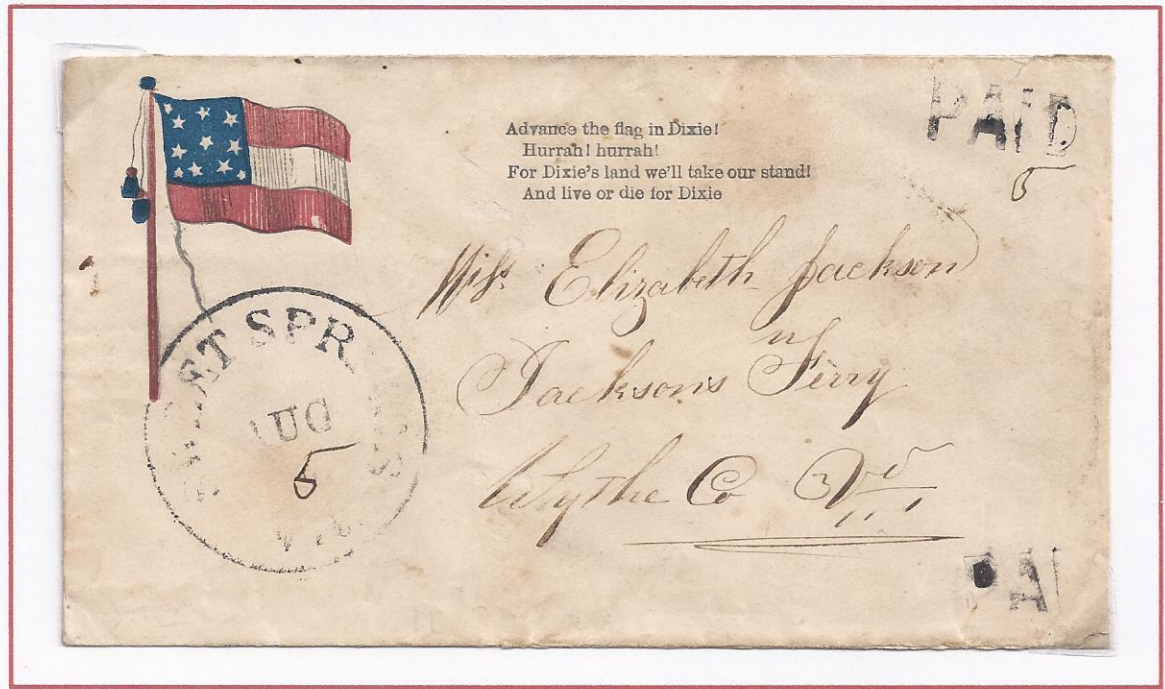 Advance the flag in Dixie!
Hurrah! hurrah!
For Dixie's land we'll take our stand!
And live or die for Dixie
PAID
5
Miss Elizabeth Jackson
Jacksons Ferry
Wythe Co Va
SWEET SPRINGS
AUG
5
Va.
PAI